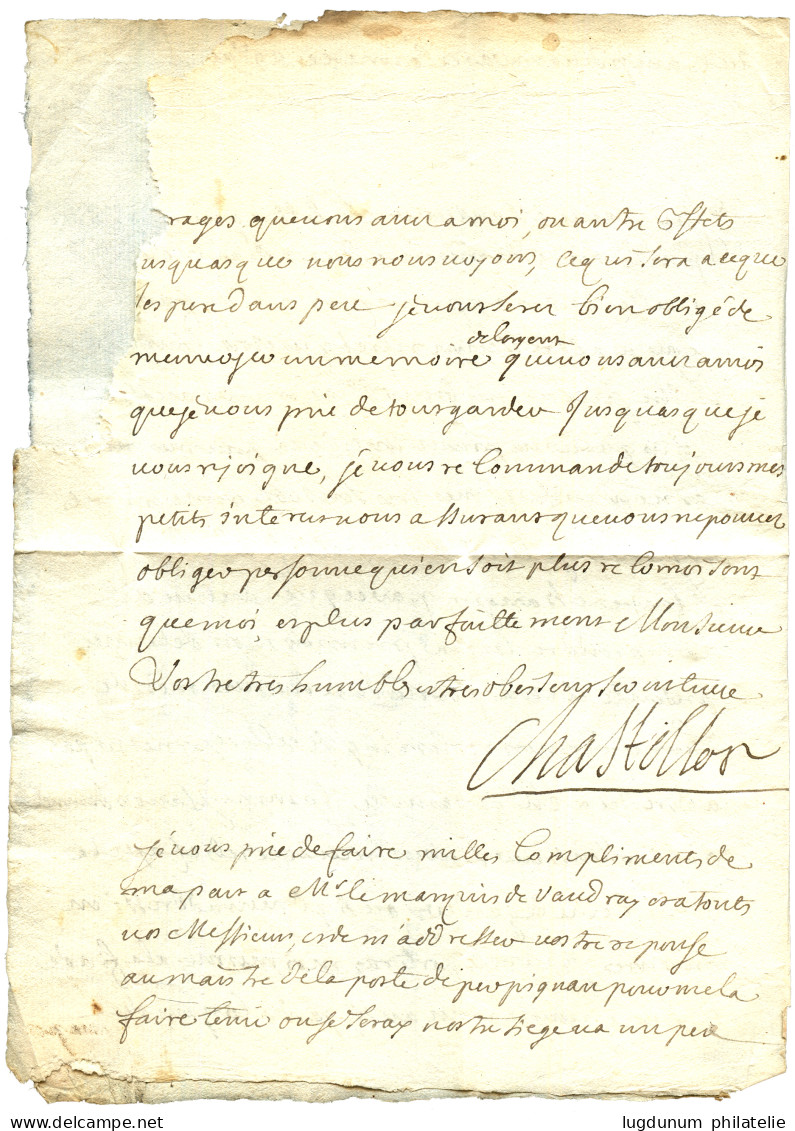 rages que vous avez a moi, ou autre Effets
usquasque nous nous voyons, ce qui sera a ce que
jespere dans peu je vous serez bien obligé de
menvoyer un memoire de largent que vous avez a moi
que je vous prie de tour garder Jusquasque je
vous rejoigne, je vous recommande toujours mes
petits interes vous assurant que vous ne pouvez
obliger personne qui en soit plus reconoissant
que moi, et plus parfaittement Monsieur
Vostre tres humble et tres obeisent serviteur
Chastillon
je vous prie de faire milles Compliments de
ma part a Mr le marquis de Vaudray et a touts
vos Messieurs, et de m'addresser vostre reponse
au maistre de la poste de perpignan pour me la
faire tenir ou je seray nostre siege va un peu
lugdunum philatelie